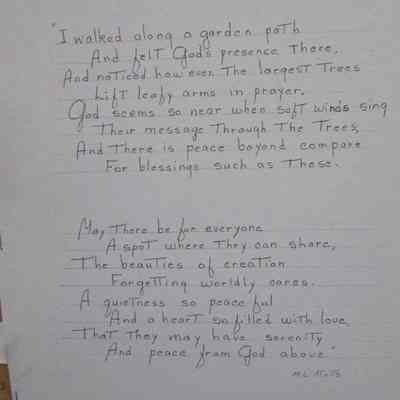 "I walked along a garden path
And felt God's presence there,
And noticed how even The largest Trees
Lift leafy arms in prayer.
God seems so near when soft winds sing
Their message Through The Trees,
And There is peace beyond compare
For blessings such as These.
May There be for everyone
A spot where They can share,
The beauties of creation
Forgetting worldly cares.
A quietness so peaceful
And a heart so filled with love,
That They may have serenity
And peace from God above"